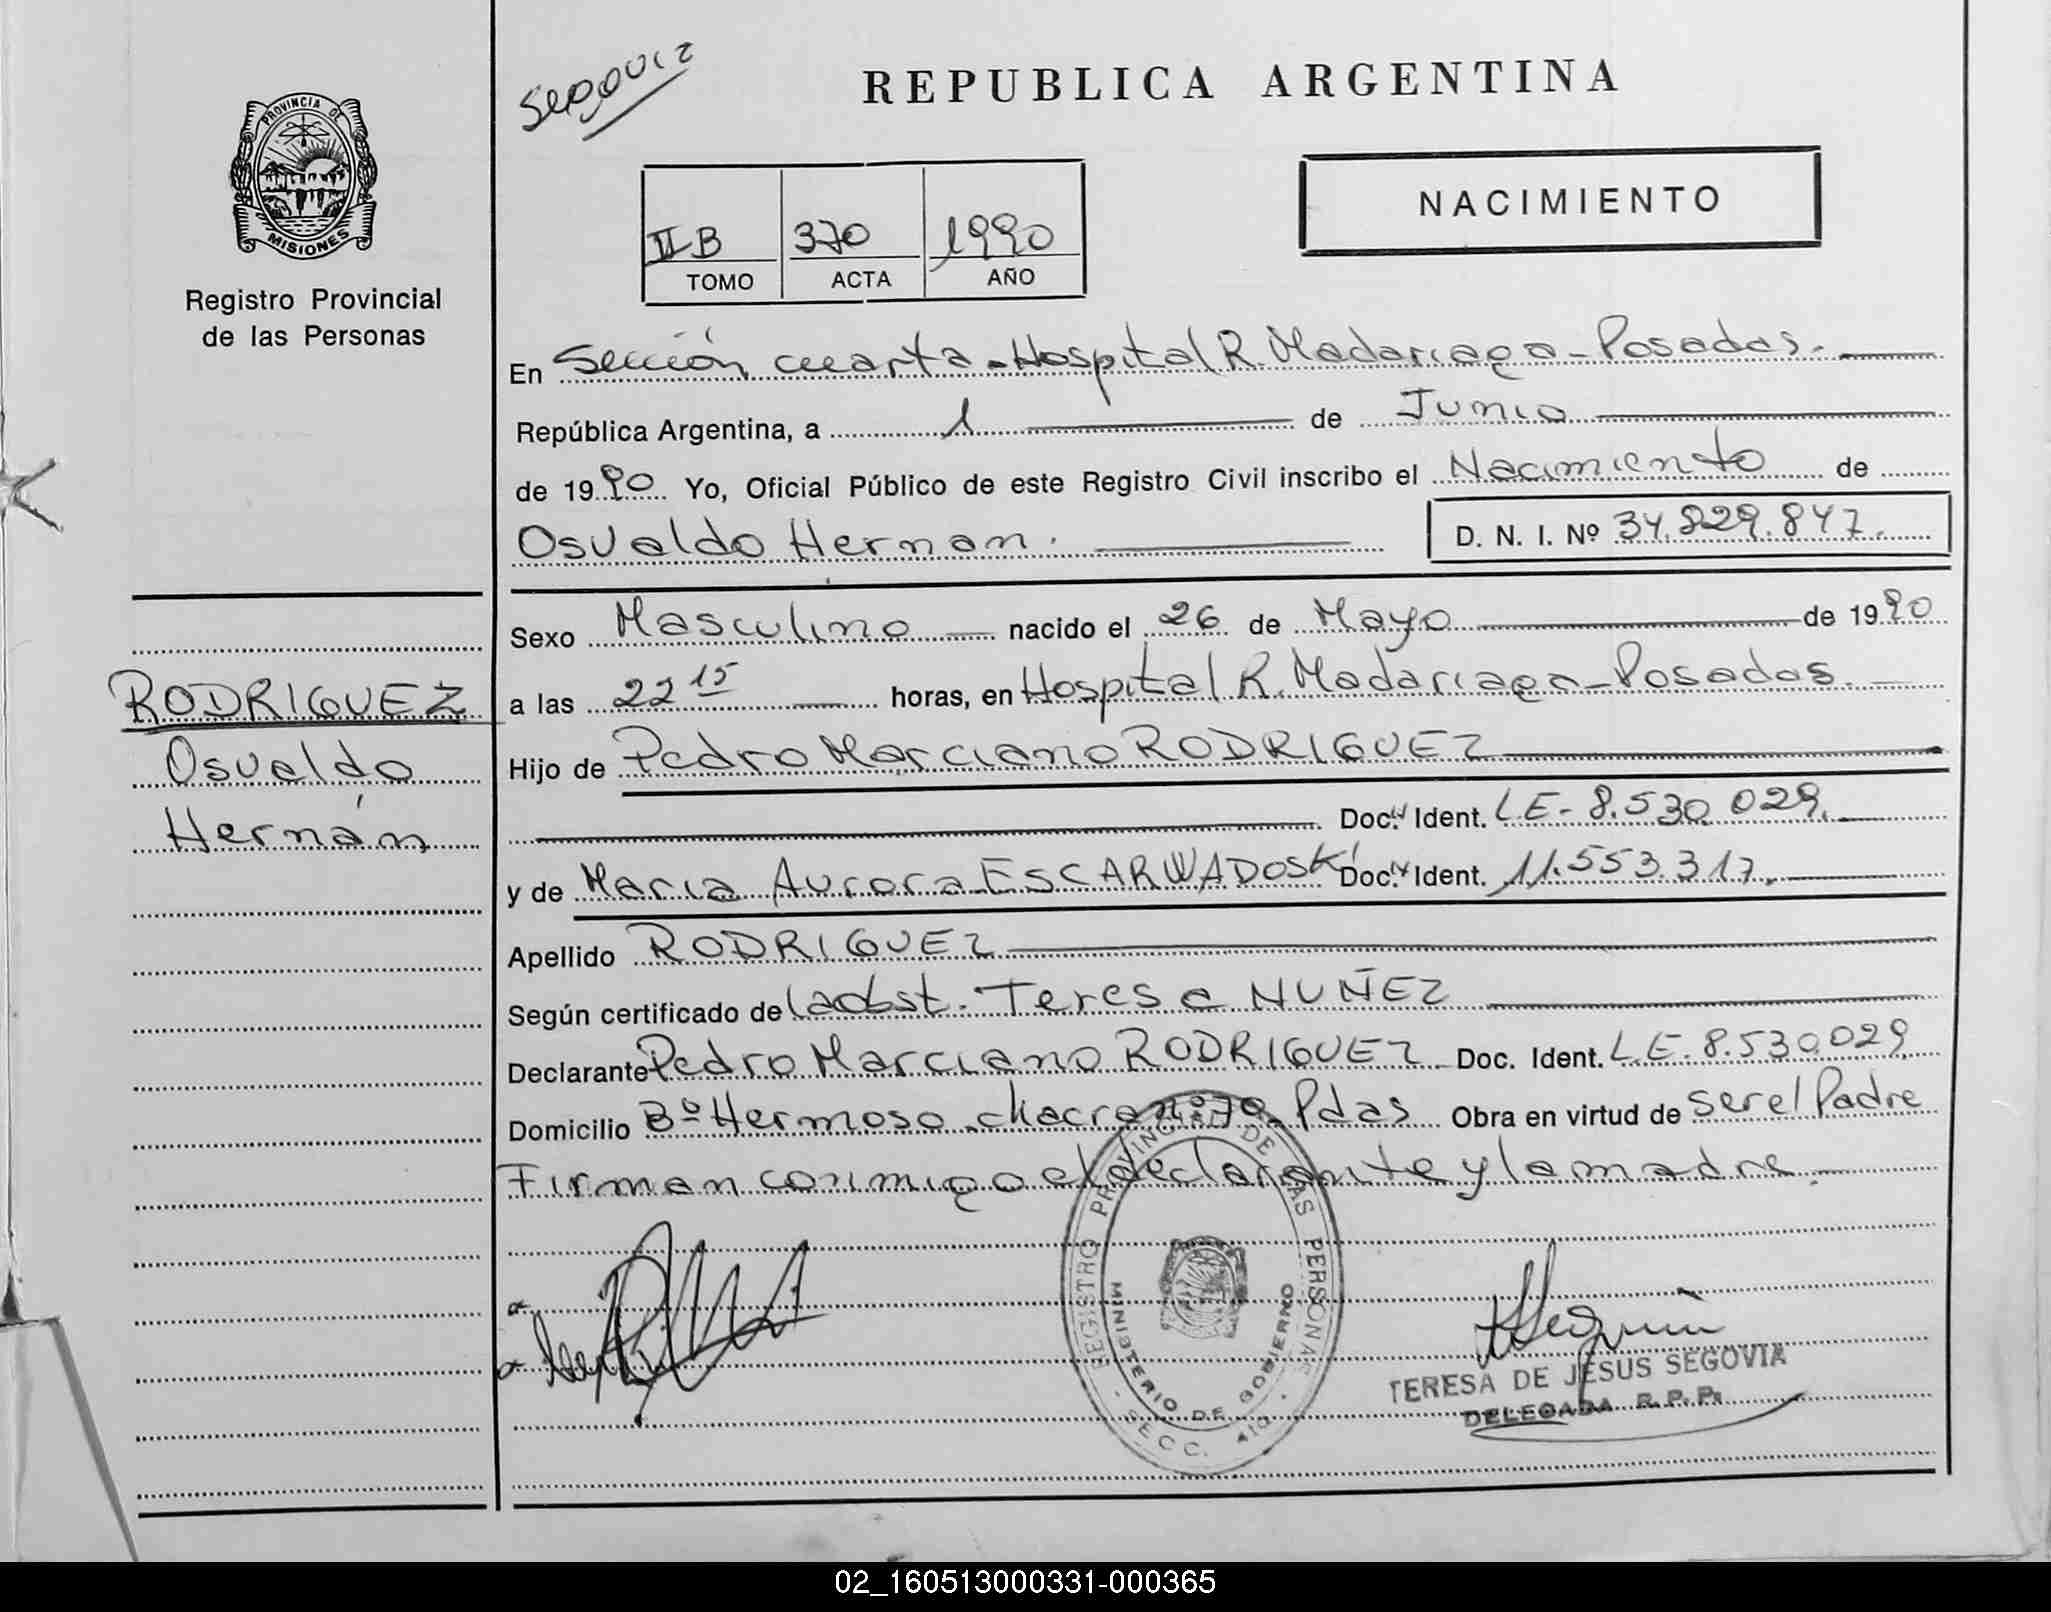 Segovia
REPUBLICA ARGENTINA
PROVINCIA DE
MISIONES
Registro Provincial
de las Personas
NACIMIENTO
II-B 370 1990
TOMO ACTA AÑO
En Sección cuarta - Hospital R. Madariaga - Posadas.
República Argentina, a 1 de Junio
de 1990 Yo, Oficial Público de este Registro Civil inscribo el Nacimiento de
Osvaldo Hernan. D. N. I. Nº 34.829.847.
Sexo Masculino nacido el 26 de Mayo de 1990
a las 22 15 horas, en Hospital R. Madariaga - Posadas.
Hijo de Pedro Marciano RODRIGUEZ
Doc. Ident. LE- 8.530.029.
y de Maria Aurora ESCARWADOSKI Doc. Ident. 11.553.317.
Apellido RODRIGUEZ
Según certificado de la obst. Teresa NUÑEZ
Declarante Pedro Marciano RODRIGUEZ Doc. Ident. L.E. 8.530.029
Domicilio Bº Hermoso chacra nº 70 Pdas Obra en virtud de ser el Padre
Firman conmigo el declarante y la madre.
RODRIGUEZ
Osvaldo
Hernán
REGISTRO PROVINCIAL DE LAS PERSONAS
MINISTERIO DE GOBIERNO
SECC. 4ta
TERESA DE JESUS SEGOVIA
DELEGADA R. P. P.
02_160513000331-000365